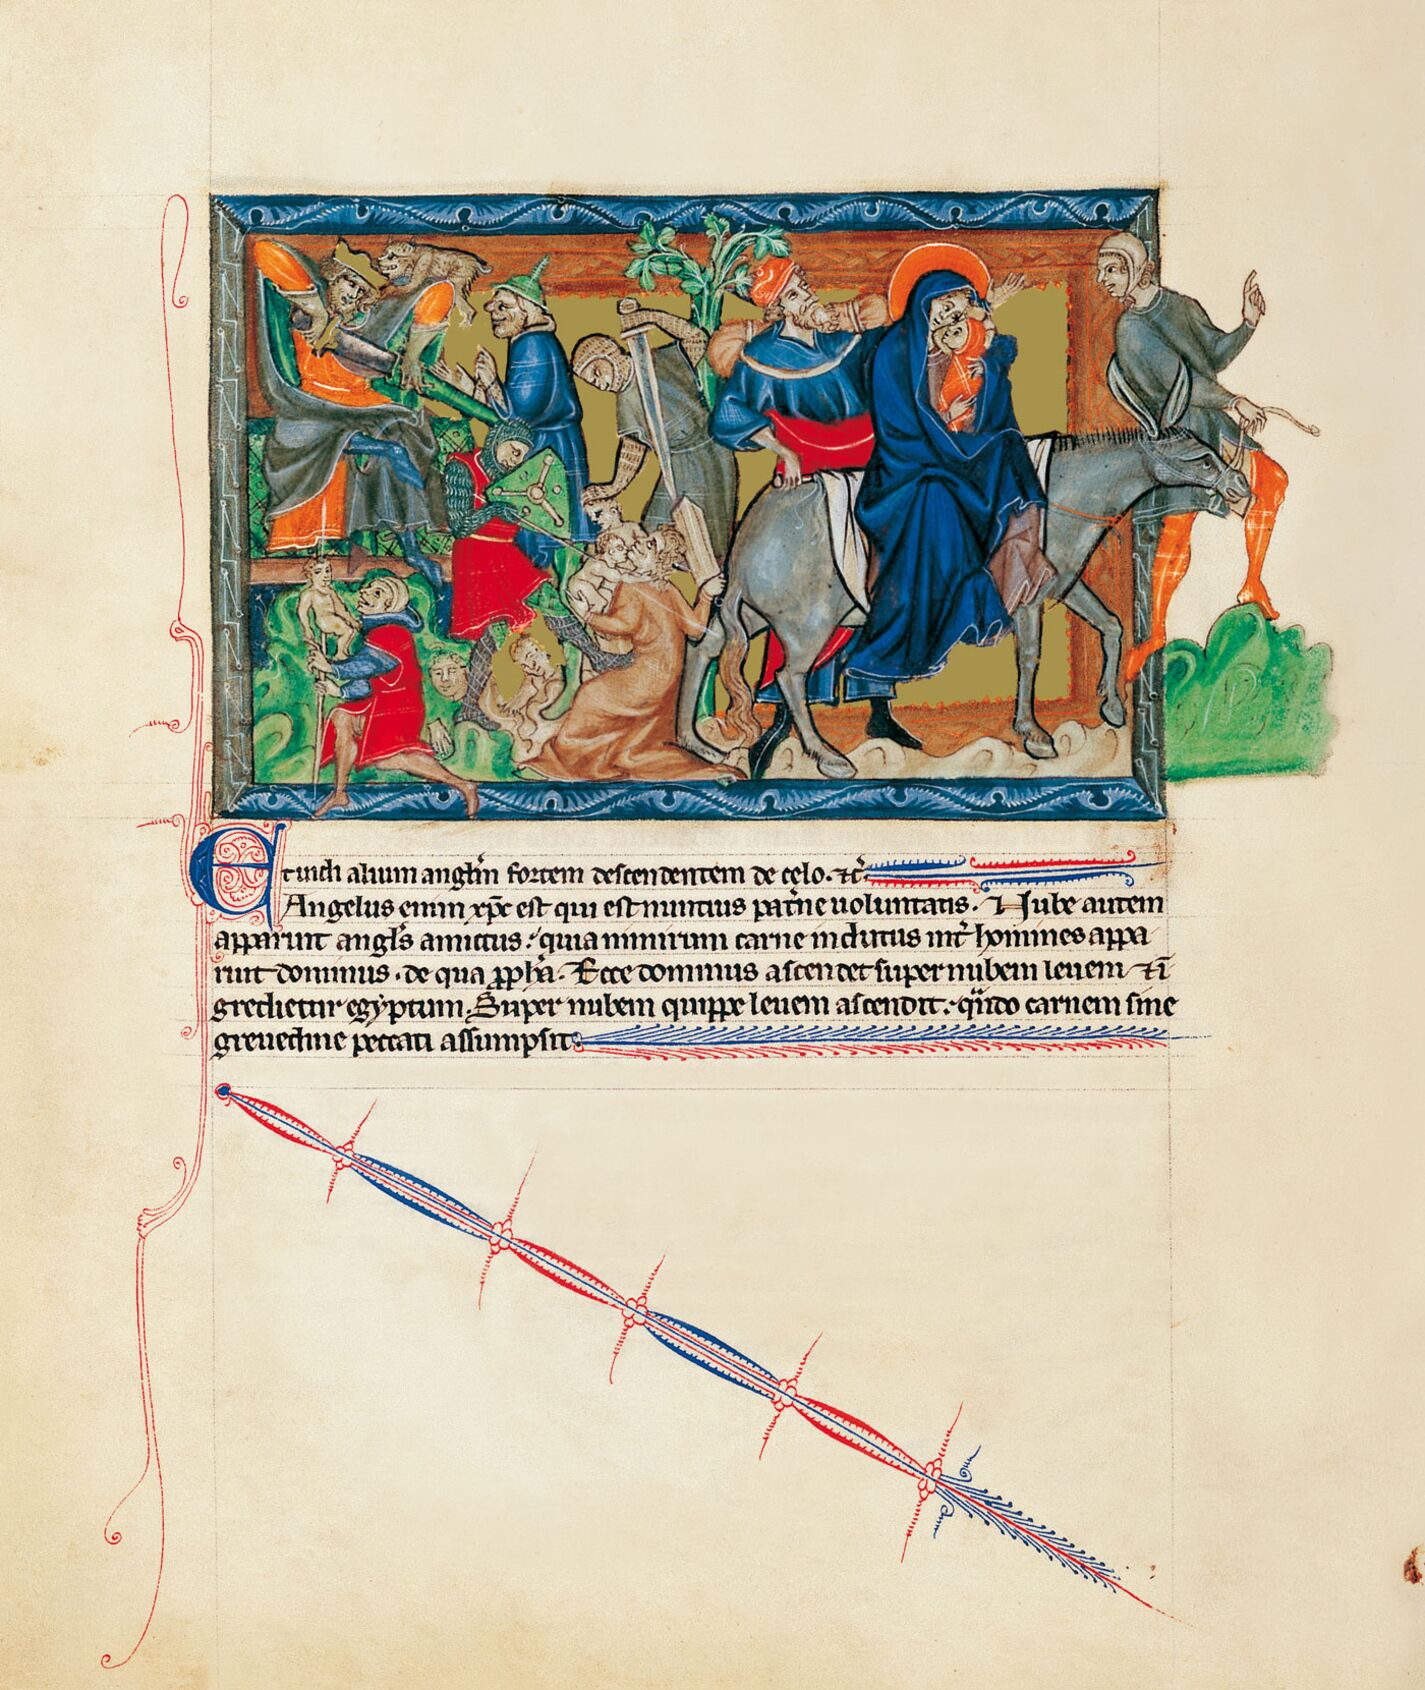 Et uidi alium angl̄m fortem descendentem de celo. ⁊c̄.
Angelus enim xp̄c est qui est nuntius pat̄ne uoluntatis. Nube autem
apparuit angl̄s amictus. quia nimirum carne indutus int̄ homines appa
ruit dominus. de qua ꝓph̄a. Ecce dominus ascendet super nubem leuem ⁊ ī
gredietur egyptum. Super nubem quippe leuem ascendit. qn̄do carnem sine
greuedine peccati assumpsit.